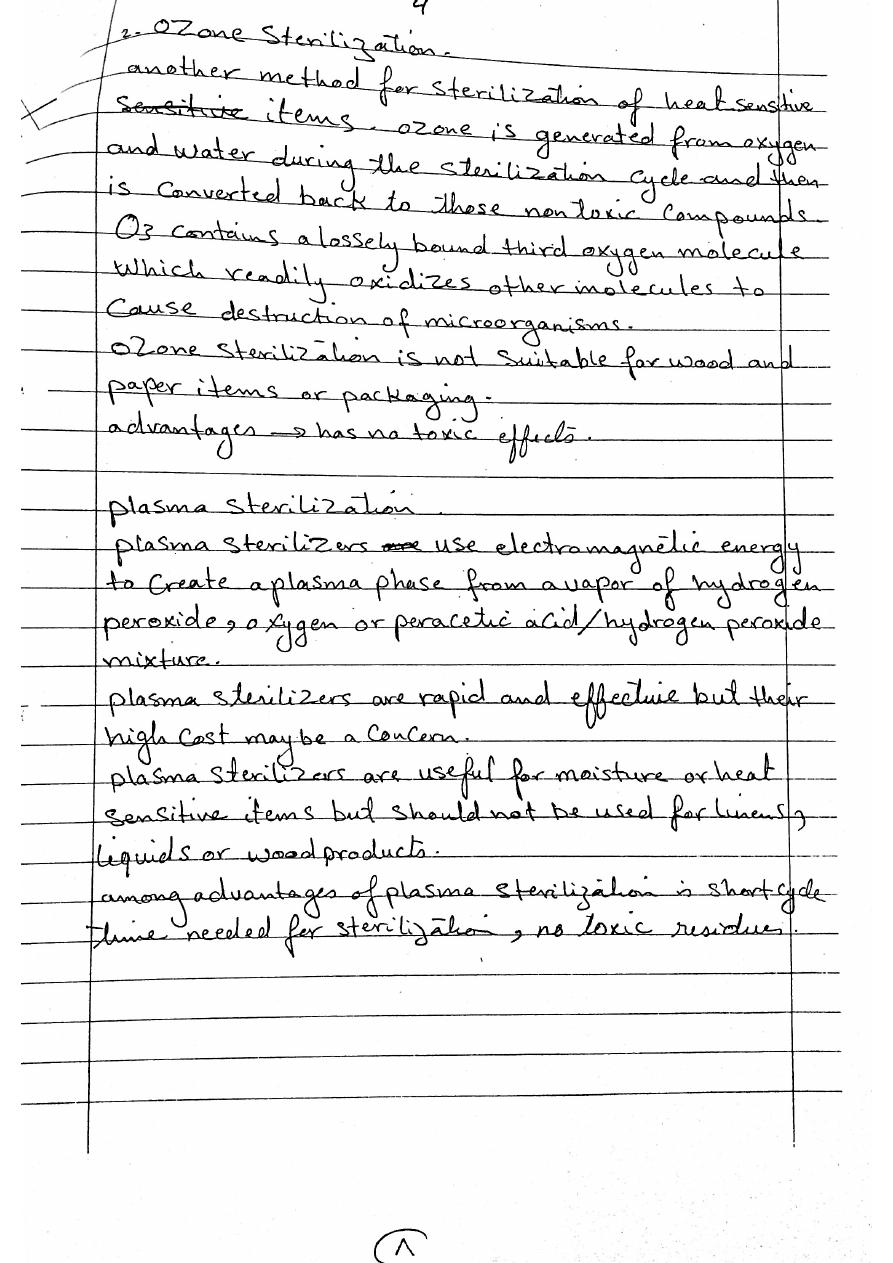 4
2. Ozone Sterilization.
another method for sterilization of heat sensitive
sensitive items. ozone is generated from oxygen
and water during the sterilization cycle and then
is converted back to those nontoxic compounds.
O3 contains a lossely bound third oxygen molecule
which readily oxidizes other molecules to
cause destruction of microorganisms.
ozone sterilization is not suitable for wood and
paper items or packaging.
advantages → has no toxic effects.
plasma sterilization
plasma sterilizers use electromagnetic energy
to create a plasma phase from a vapor of hydrogen
peroxide, oxygen or peracetic acid/hydrogen peroxide
mixture.
plasma sterilizers are rapid and effective but their
high cost may be a concern.
plasma sterilizers are useful for moisture or heat
sensitive items but should not be used for linens,
liquids or wood products.
among advantages of plasma sterilization is short cycle
time needed for sterilization, no toxic residues.
٨